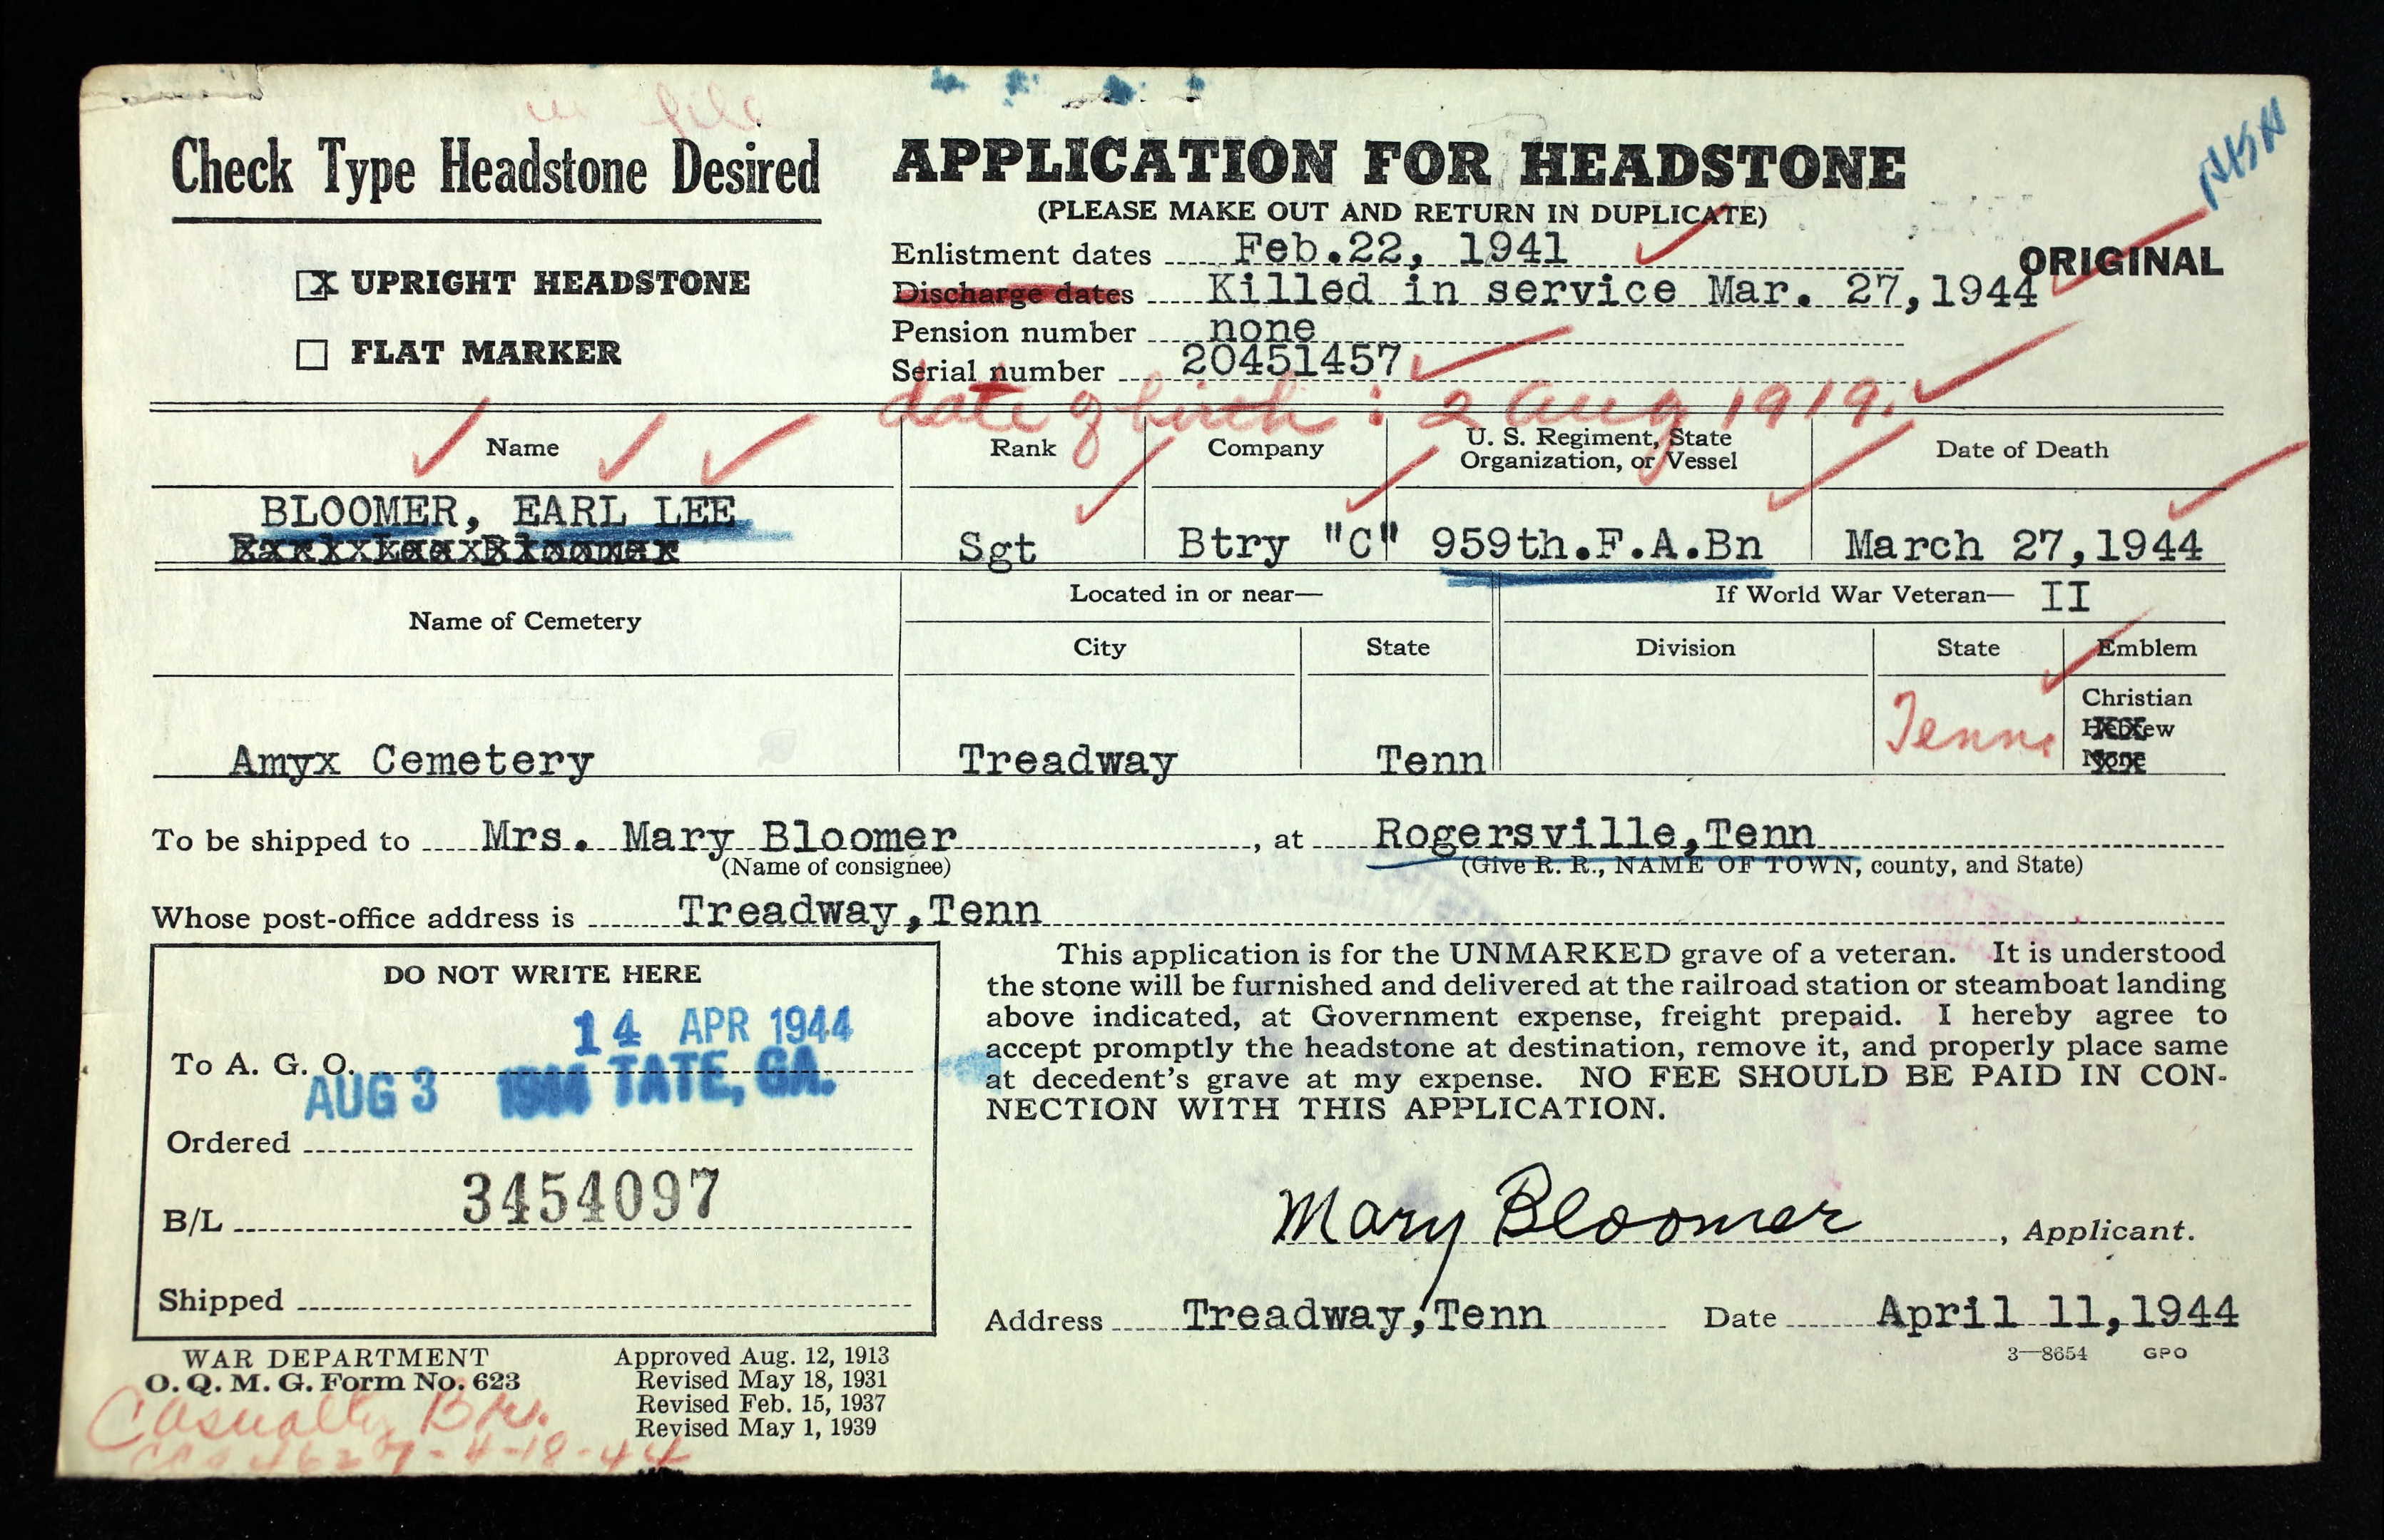 in file
Check Type Headstone Desired
☒ UPRIGHT HEADSTONE
☐ FLAT MARKER
APPLICATION FOR HEADSTONE
(PLEASE MAKE OUT AND RETURN IN DUPLICATE)
ORIGINAL
Enlistment dates Feb.22, 1941
Discharge dates Killed in service Mar. 27,1944
Pension number none
Serial number 20451457
date of birth: 2 Aug 1919.
Name
Rank
Company
U. S. Regiment, State Organization, or Vessel
Date of Death
BLOOMER, EARL LEE
Earl Lee Bloomer
Sgt
Btry "C"
959th.F.A.Bn
March 27,1944
Name of Cemetery
Located in or near—
If World War Veteran— II
City
State
Division
State
Emblem
Amyx Cemetery
Treadway
Tenn
Tenn
Christian
Hebrew
None
To be shipped to Mrs. Mary Bloomer, at Rogersville,Tenn
(Name of consignee) (Give R. R., NAME OF TOWN, county, and State)
Whose post-office address is Treadway,Tenn
DO NOT WRITE HERE
14 APR 1944
To A. G. O.
AUG 3 1944 TATE, GA.
Ordered
3454097
B/L
Shipped
This application is for the UNMARKED grave of a veteran. It is understood
the stone will be furnished and delivered at the railroad station or steamboat landing
above indicated, at Government expense, freight prepaid. I hereby agree to
accept promptly the headstone at destination, remove it, and properly place same
at decedent's grave at my expense. NO FEE SHOULD BE PAID IN CON-
NECTION WITH THIS APPLICATION.
Mary Bloomer, Applicant.
Address Treadway,Tenn Date April 11,1944
3—8654 GPO
WAR DEPARTMENT
O. Q. M. G. Form No. 623
Approved Aug. 12, 1913
Revised May 18, 1931
Revised Feb. 15, 1937
Revised May 1, 1939
Casualty Br.
4-18-44